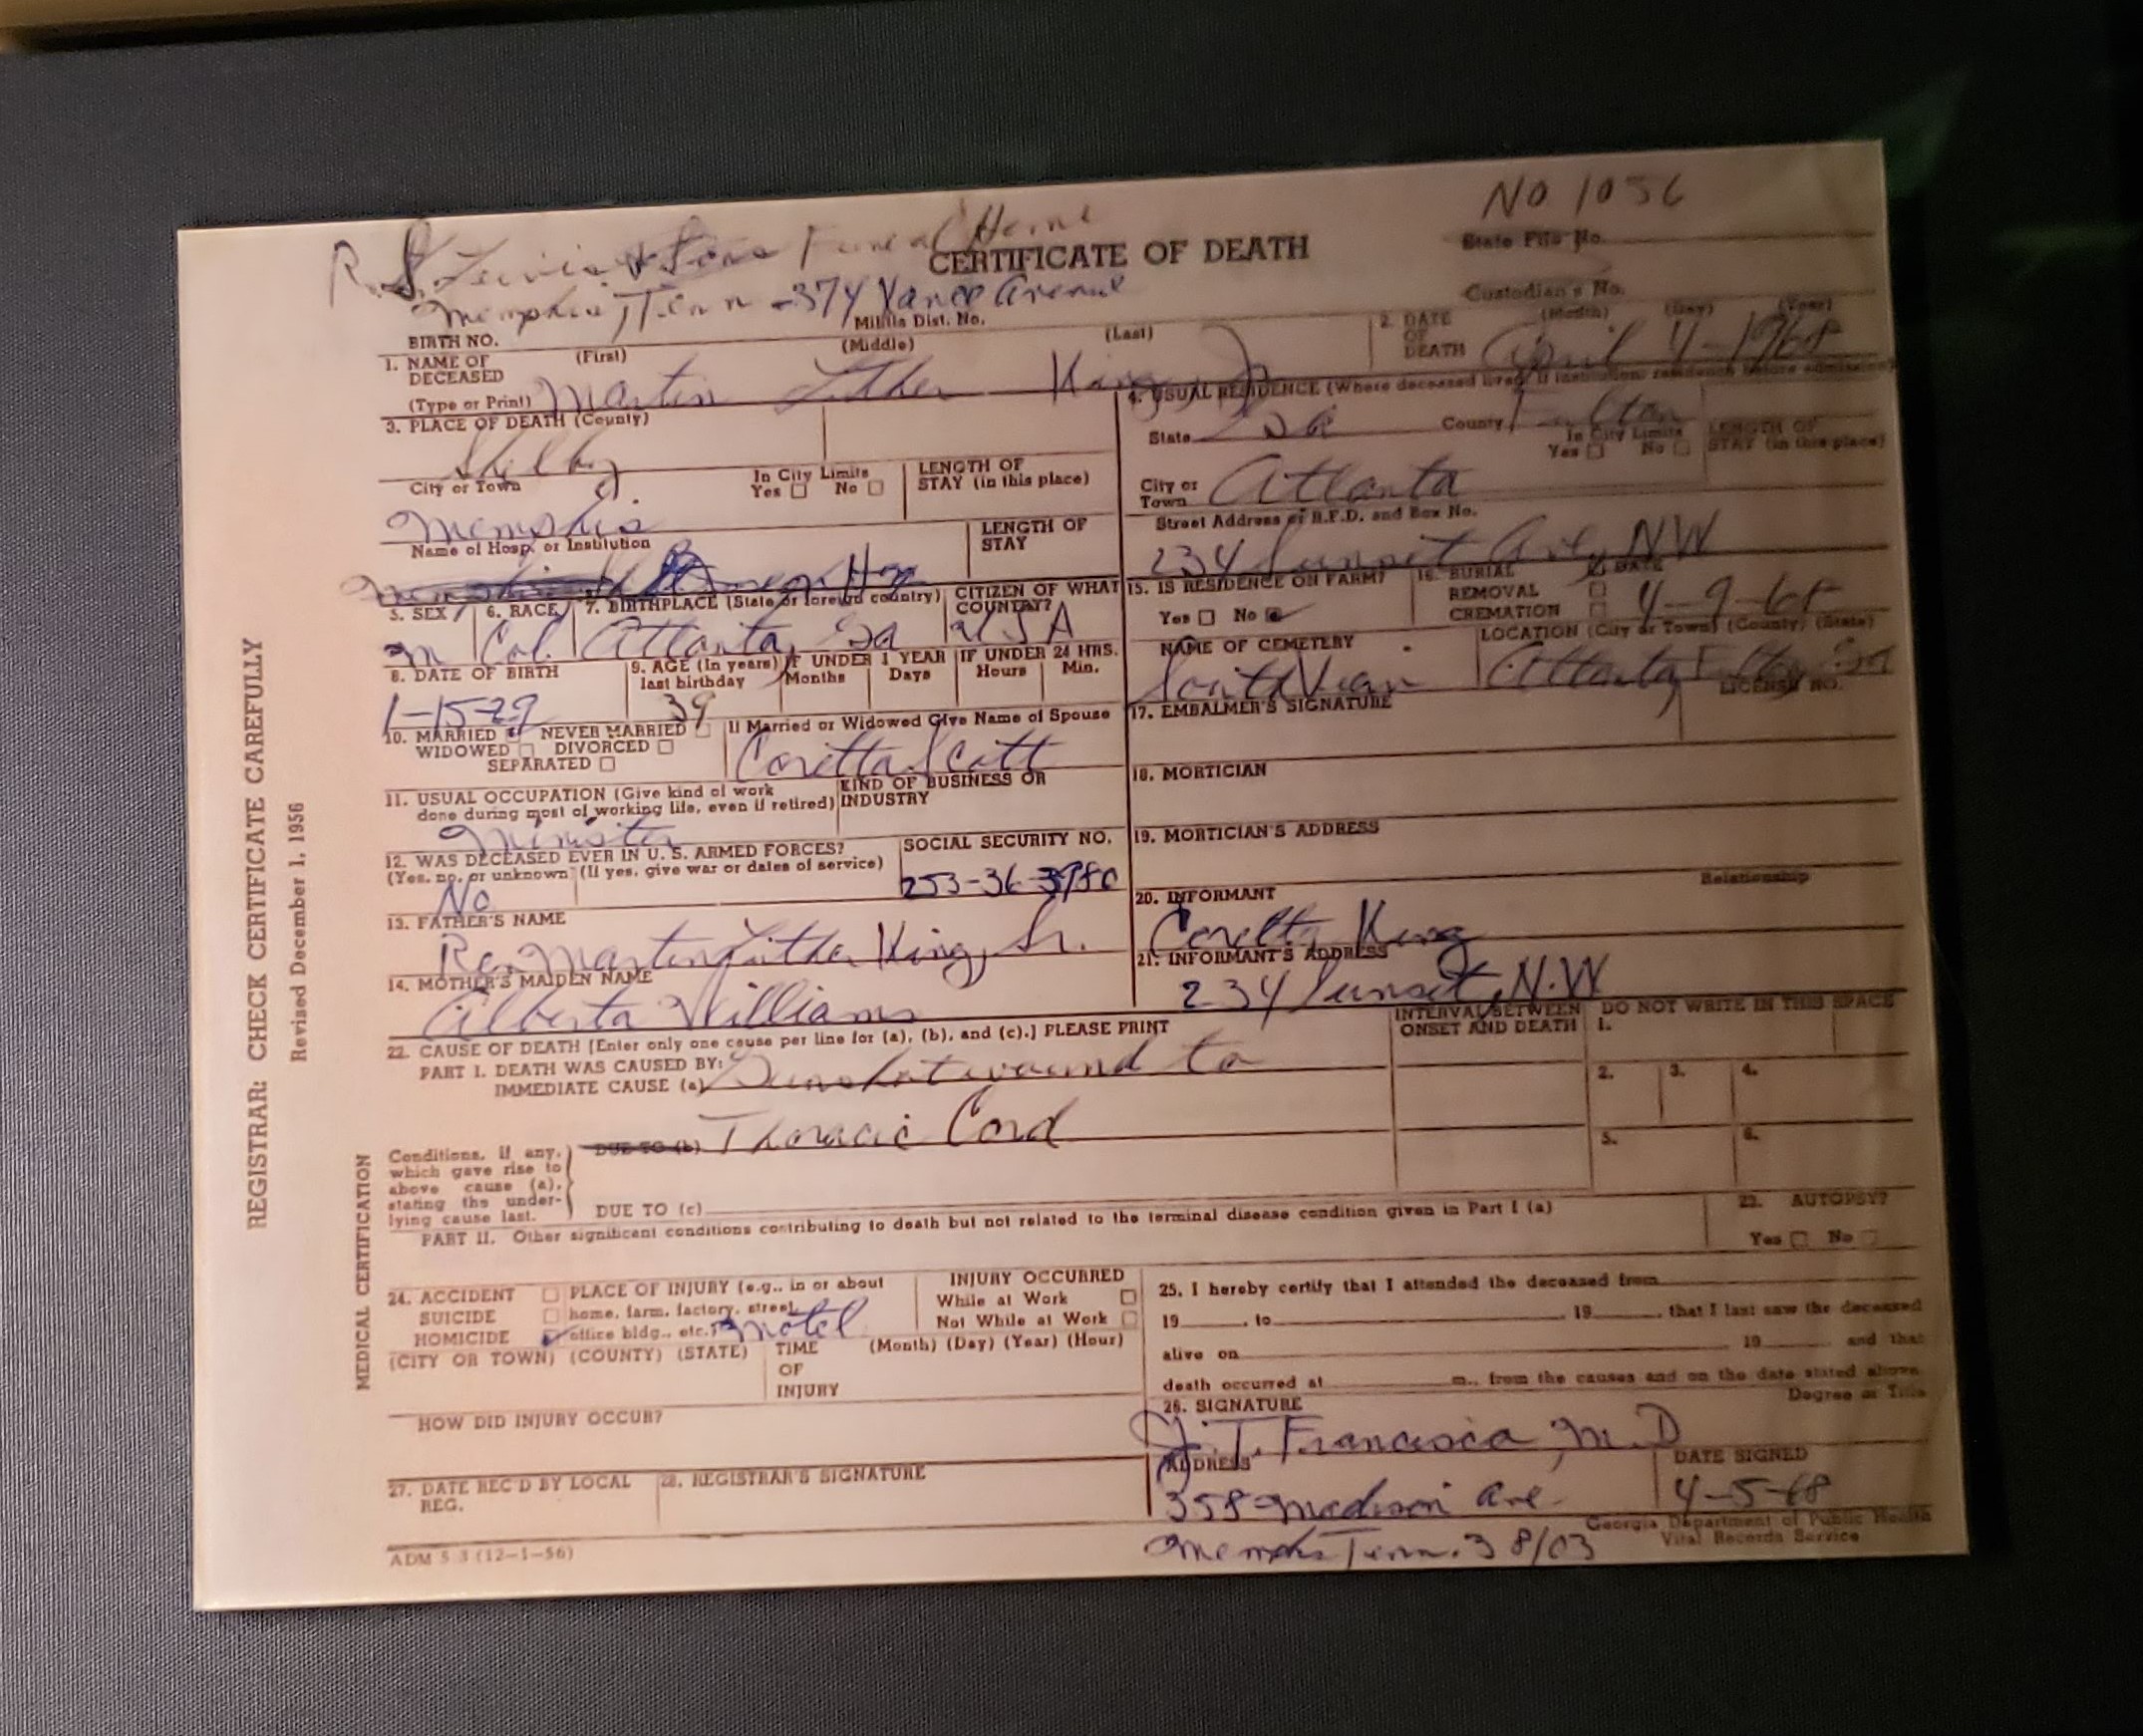 No 1056
R. S. Lewis & Sons Funeral Home
CERTIFICATE OF DEATH
State File No.
Memphis, Tenn - 374 Vance Avenue
Custodian's No.
BIRTH NO.
Militia Dist. No.
1. NAME OF DECEASED (Type or Print)
(First) (Middle) (Last)
Martin Luther King, Jr
2. DATE OF DEATH (Month) (Day) (Year)
April 4-1968
3. PLACE OF DEATH (County)
Shelby
City or Town
In City Limits Yes No
LENGTH OF STAY (in this place)
Memphis
Name of Hosp. or Institution
LENGTH OF STAY
4. USUAL RESIDENCE (Where deceased lived. If institution: residence before admission)
State Ga County Fulton
In City Limits Yes No
LENGTH OF STAY (in this place)
City or Town Atlanta
Street Address or R.F.D. and Box No.
234 Sunset Ave, NW
5. SEX
M
6. RACE
Col.
7. BIRTHPLACE (State or foreign country)
Atlanta, Ga
CITIZEN OF WHAT COUNTRY?
USA
8. DATE OF BIRTH
1-15-29
9. AGE (In years) last birthday
39
IF UNDER 1 YEAR Months Days
IF UNDER 24 HRS. Hours Min.
10. MARRIED NEVER MARRIED
WIDOWED DIVORCED
SEPARATED
If Married or Widowed Give Name of Spouse
Coretta Scott
11. USUAL OCCUPATION (Give kind of work
done during most of working life, even if retired)
Minister
KIND OF BUSINESS OR INDUSTRY
12. WAS DECEASED EVER IN U. S. ARMED FORCES?
(Yes, no, or unknown (If yes, give war or dates of service)
No
SOCIAL SECURITY NO.
253-36-3980
13. FATHER'S NAME
Rev Martin Luther King, Sr.
14. MOTHER'S MAIDEN NAME
Alberta Williams
15. IS RESIDENCE ON FARM?
Yes No
16. BURIAL DATE
REMOVAL
CREMATION
4-9-68
NAME OF CEMETERY
South View
LOCATION (City or Town) (County) (State)
Atlanta, Fulton
17. EMBALMER'S SIGNATURE
LICENSE NO.
18. MORTICIAN
19. MORTICIAN'S ADDRESS
20. INFORMANT
Relationship
Coretta King
21. INFORMANT'S ADDRESS
234 Sunset, N.W
22. CAUSE OF DEATH [Enter only one cause per line for (a), (b), and (c).] PLEASE PRINT
PART I. DEATH WAS CAUSED BY:
IMMEDIATE CAUSE (a) Gunshot wound to
DUE TO (b) Thoracic Cord
Conditions, if any,
which gave rise to
above cause (a),
stating the under-
lying cause last.
DUE TO (c)
INTERVAL BETWEEN
ONSET AND DEATH
DO NOT WRITE IN THIS SPACE
1.
2. 3. 4.
5. 6.
PART II. Other significant conditions contributing to death but not related to the terminal disease condition given in Part I (a)
23. AUTOPSY?
Yes No
24. ACCIDENT
SUICIDE
HOMICIDE
PLACE OF INJURY (e.g., in or about
home, farm, factory, street,
office bldg., etc.) Motel
INJURY OCCURRED
While at Work
Not While at Work
(CITY OR TOWN) (COUNTY) (STATE)
TIME OF INJURY
(Month) (Day) (Year) (Hour)
HOW DID INJURY OCCUR?
25. I hereby certify that I attended the deceased from
19 , to , 19 , that I last saw the deceased
alive on 19 and that
death occurred at m., from the causes and on the date stated above.
26. SIGNATURE
Degree or Title
J. T. Francisco, M. D
ADDRESS
358 Madison Ave
Memphis Tenn. 38103
DATE SIGNED
4-5-68
27. DATE REC'D BY LOCAL REG.
28. REGISTRAR'S SIGNATURE
Georgia Department of Public Health
Vital Records Service
ADM 5.3 (12-1-56)
REGISTRAR: CHECK CERTIFICATE CAREFULLY
Revised December 1, 1956
MEDICAL CERTIFICATION